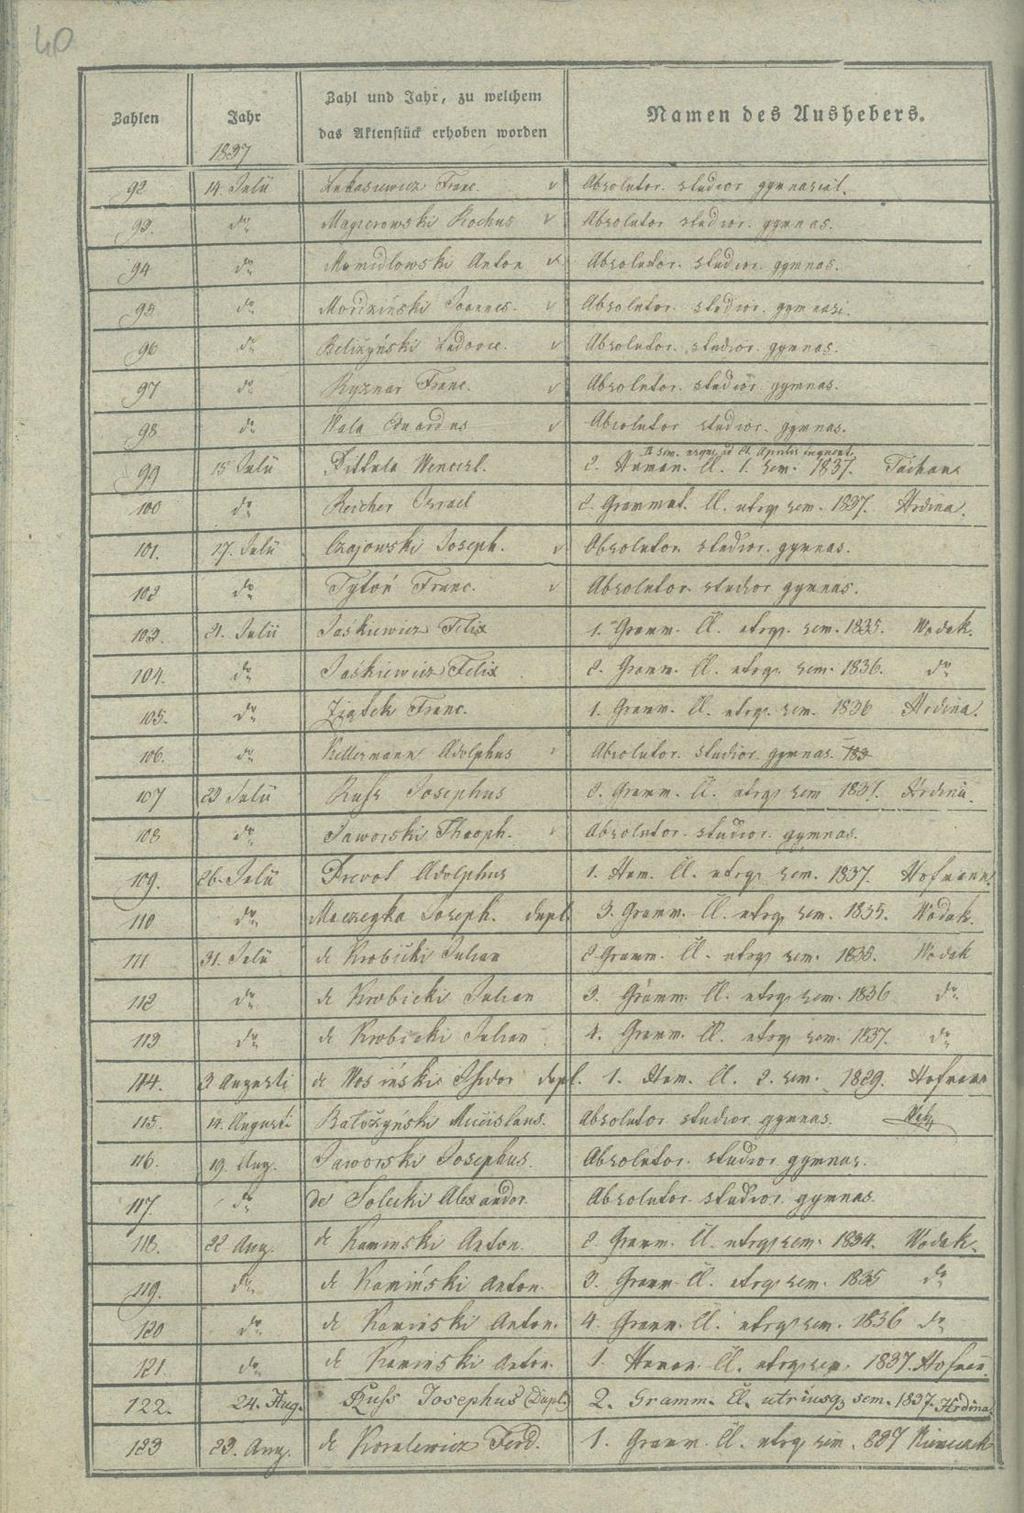 40
Zahlen Jahr Zahl und Jahr, zu welchem das Aktenstück erhoben worden Namen des Aushebers.
1837
92 14. Julii Lukasiewicz Franc. v Absolutor. studior gymnasial.
93. do Magierowski Rochus v Absolutor studior. gymnas.
94 do Anton v Absolutor. studior. gymnas.
95 do Joannes. v Absolutor. studior. gymnasi.
96 do Ludovic. v Absolutor. studior. gymnas.
97 do Ryznar Franc. v Absolutor. studior. gymnas.
98 do Wala Eduardus v Absolutor studior. gymnas.
99 15 Julii Dittula Wencesl. 2. Human. Cl. 1. Sem. 1837.
100 do Reicher Israel 2. Grammat. Cl. utrq. sem. 1837. Hrdina.
101. 17. Julii Czajowski Joseph. v Absolutor. studior. gymnas.
102 do Tytoń Franc. v Absolutor. studior gymnas.
103. 21. Julii Jaskiewicz Felix 1. Gramm. Cl. utrq. sem. 1835. Wodak.
104. do Jaskiewicz Felix 2. Gramm. Cl. utrq. sem. 1836. do
105. do Ziętek Franc. 1. Gramm. Cl. utrq. sem. 1836 Hrdina.
106. do Kellermann Adolphus v Absolutor. studior. gymnas. 183
107 23 Julii Russ Josephus 2. Gramm. Cl. utrq. sem 1837. Hrdina.
108 do Jaworski Theoph. v Absolutor. studior. gymnas.
109. 26. Julii Drevot Adolphus 1. Hum. Cl. utrq. sem. 1837. Hofmann.
110 do Maczegka Joseph. dupl. 3. Gramm. Cl. utrq. sem. 1835. Wodak.
111 31. Julii de Krobicki Julian 2. Gramm. Cl. utrq. sem. 1835. Wodak
112 do de Krobicki Julian 3. Gramm. Cl. utrq. sem. 1836 do
113 do de Krobicki Julian 4. Gramm. Cl. utrq. sem. 1837. do
114. 3. Augusti de Wosiński Isidor dupl. 1. Hum. Cl. 2. sem. 1829. Hofmann
115. 14. Augusti Miecislaus. Absolutor studior gymnas.
116. 19. Aug. Jaworski Josephus. Absolutor. studior gymnas.
117. do de Solecki Alexander. Absolutor. studior. gymnas.
118. 22 Aug. de Kaminski Anton. 2. Gramm. Cl. utrq. sem. 1834. Wodak.
119. do de Kamiński Anton. 3. Gramm. Cl. utrq. sem. 1835 do
120 do de Kamiński Anton. 4. Gramm. Cl. utrq. sem. 1836 do
121. do de Kaminski Anton. 1. Human. Cl. utrq. sem. 1837. Hofmann
122. 24. Aug. Russ Josephus (Dupl.) 2. Gramm. Cl. utriusq. sem. 1837. Hrdina
123 29. Aug. de Koralewicz Ferd. 1. Gramm. Cl. utrq. sem. 837